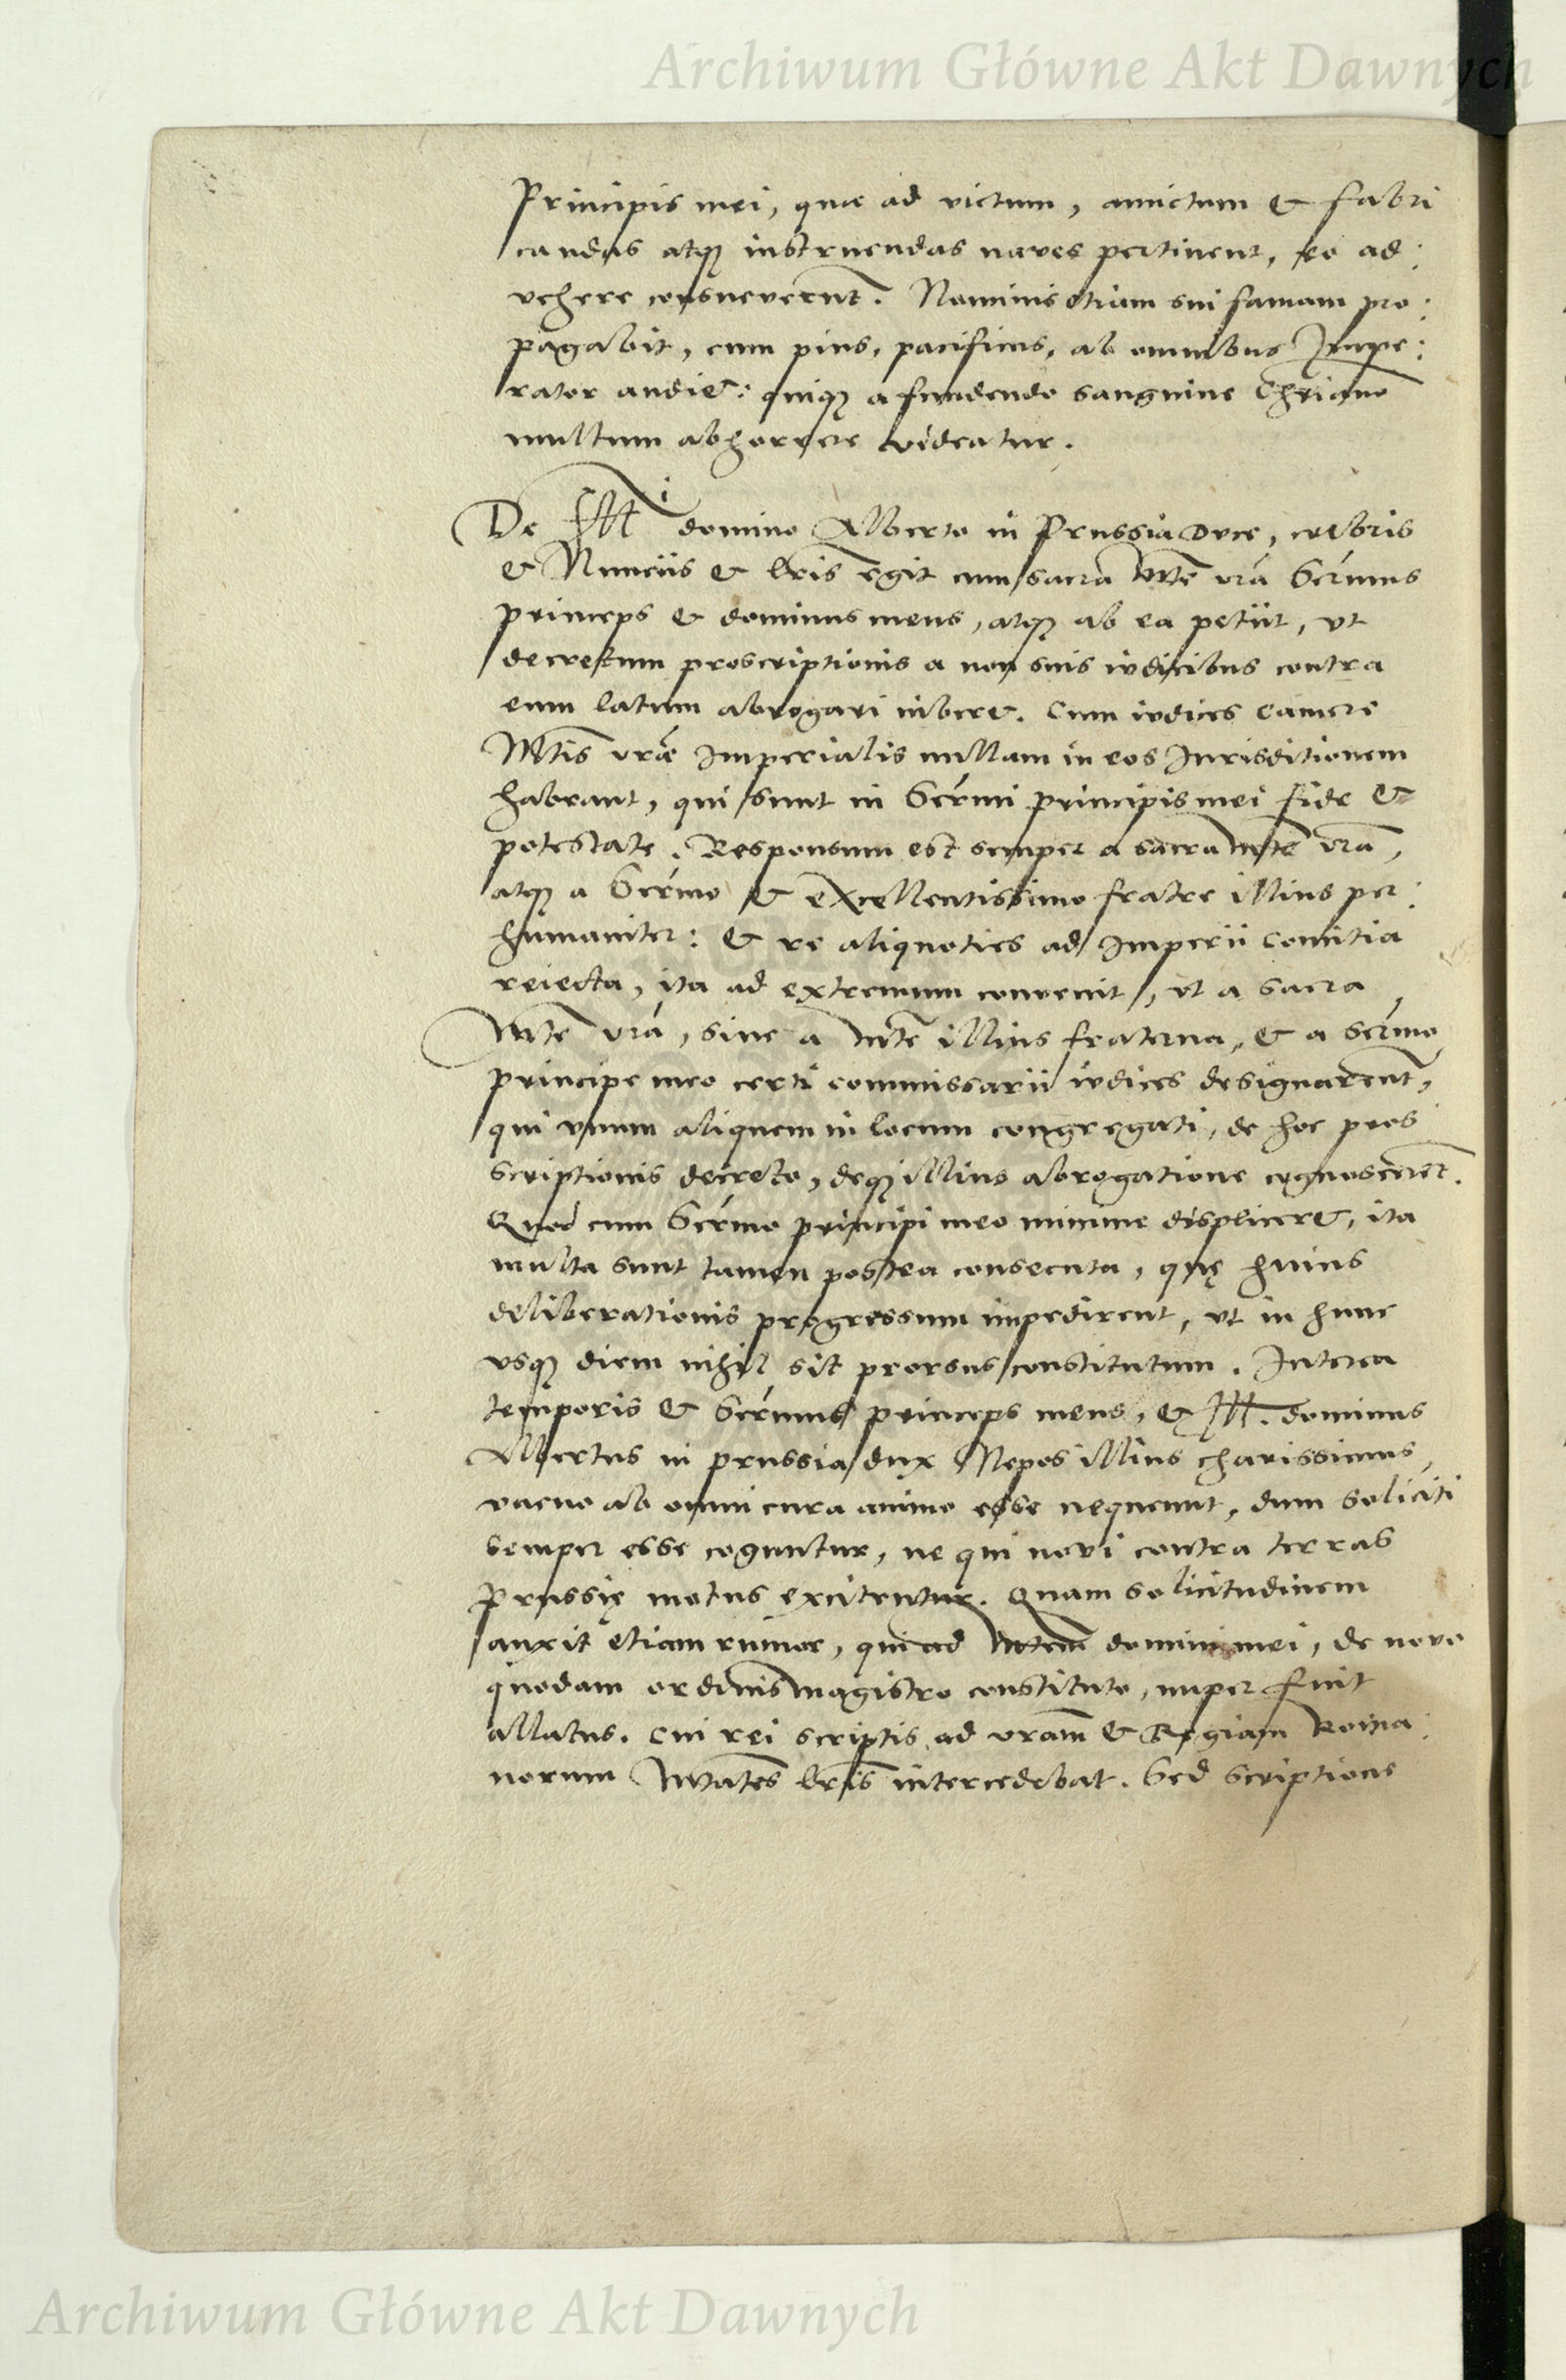 Archiwum Główne Akt Dawnych
Principis mei, quæ ad victum, amictum & fabri
candas atq3 instruendas naves pertinent, eo ad:
vehere consueverūt. Nominis etiam sui famam pro:
pagabit, cum pius, pacificus, ab omnibus Impe:
rator audiet: quiq3 a fundendo sanguine Chriano
multum abhorrere videatur.
De Illi domino Alberto in Prussia Duce, crebris
& Nunciis & lr̄is egit cum sacra Mte vrā Sermus
princeps & dominus meus, atq3 ab ea petiit, vt
decretum proscriptionis a non suis iudicibus contra
eum latum abrogari iuberet. Cum iudices Camere
Mtis vræ Imperialis nullam in eos Jurisditionem
habeant, qui sunt in Sermi principis mei fide &
potestate. Responsum est semper a sacra Mte vrā,
atq3 a Sermo & excellentissimo fratre illius per:
humaniter: & re aliquoties ad Imperii Comitia
reiecta, ita ad extremum convenit, vt a sacra
Mte vrā, sive a Mte illius fraterna, & a Sermo
principe meo certi commissarii iudices designarent,
qui vnum aliquem in locum congregati, de hoc pros
scriptionis decreto, deq3 illius abrogatione cognoscerēt.
Quod cum Sermo principi meo minime displiceret, ita
multa sunt tamen postea consecuta, quę huius
deliberationis progressum impedirent, vt in hunc
vsq3 diem nihil sit prorsus constitutum. Interea
temporis & Sermus princeps meus, & Ill. dominus
Albertus in prussia dux Nepos illius charissimus,
vacuo ab omni cura animo esse nequeunt, dum soliciti
semper esse coguntur, ne qui novi contra terras
Prussię motus excitentur. Quam solicitudinem
auxit etiam rumor, qui ad Mtem domini mei, de novo
quodam ordinis magistro constituto, nuper fuit
allatus. Cui rei scriptis ad vram & Regiam Roma:
norum Mtates lr̄is intercedebat. Sed scriptione
Archiwum Główne Akt Dawnych